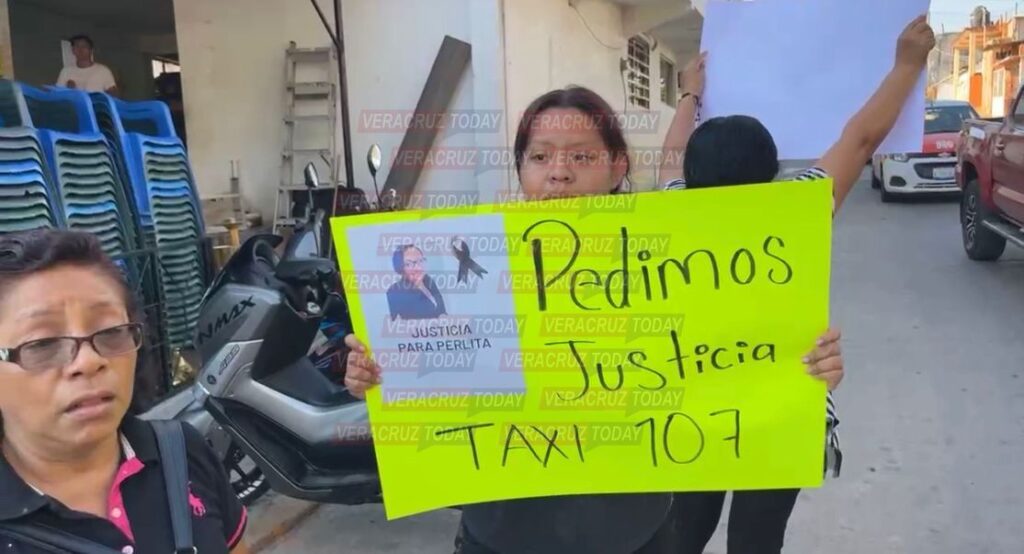 Pedimos
Justicia
TAXI 107
JUSTICIA
PARA PERLITA
NMAX
VERACRUZ TODAY